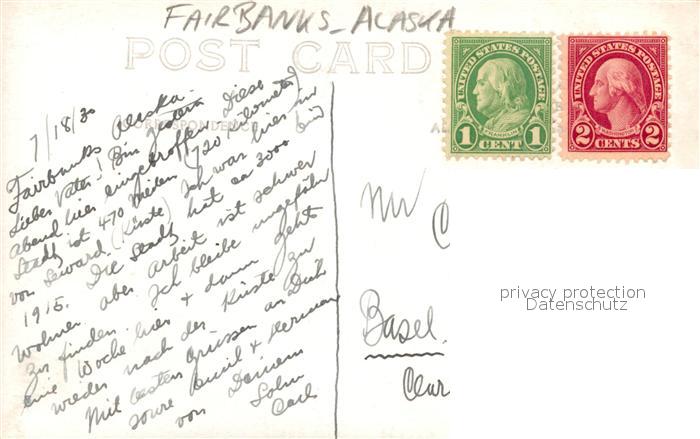 FAIRBANKS - ALASKA
POST CARD
CORRESPONDENCE
7/18/30
Fairbanks Alaska.
Lieber Vater! Bin gestern
Abend hier eingetroffen. Diese
Stadt ist 470 Meilen (720 Kilometer)
von Seward (Küste) Ich war hier in
1915. Die Stadt hat ca 3000
Wohner aber Arbeit ist schwer
zu finden. Ich bleibe ungefähr
eine Woche hier & dann gehts
wieder nach der Küste zu
Mit besten Grüssen an Dich
sowie & Herman
von Deinem
Sohn
Carl
UNITED STATES POSTAGE
FRANKLIN
1 CENT 1
UNITED STATES POSTAGE
WASHINGTON
2 CENTS 2
Basel.
privacy protection
Datenschutz